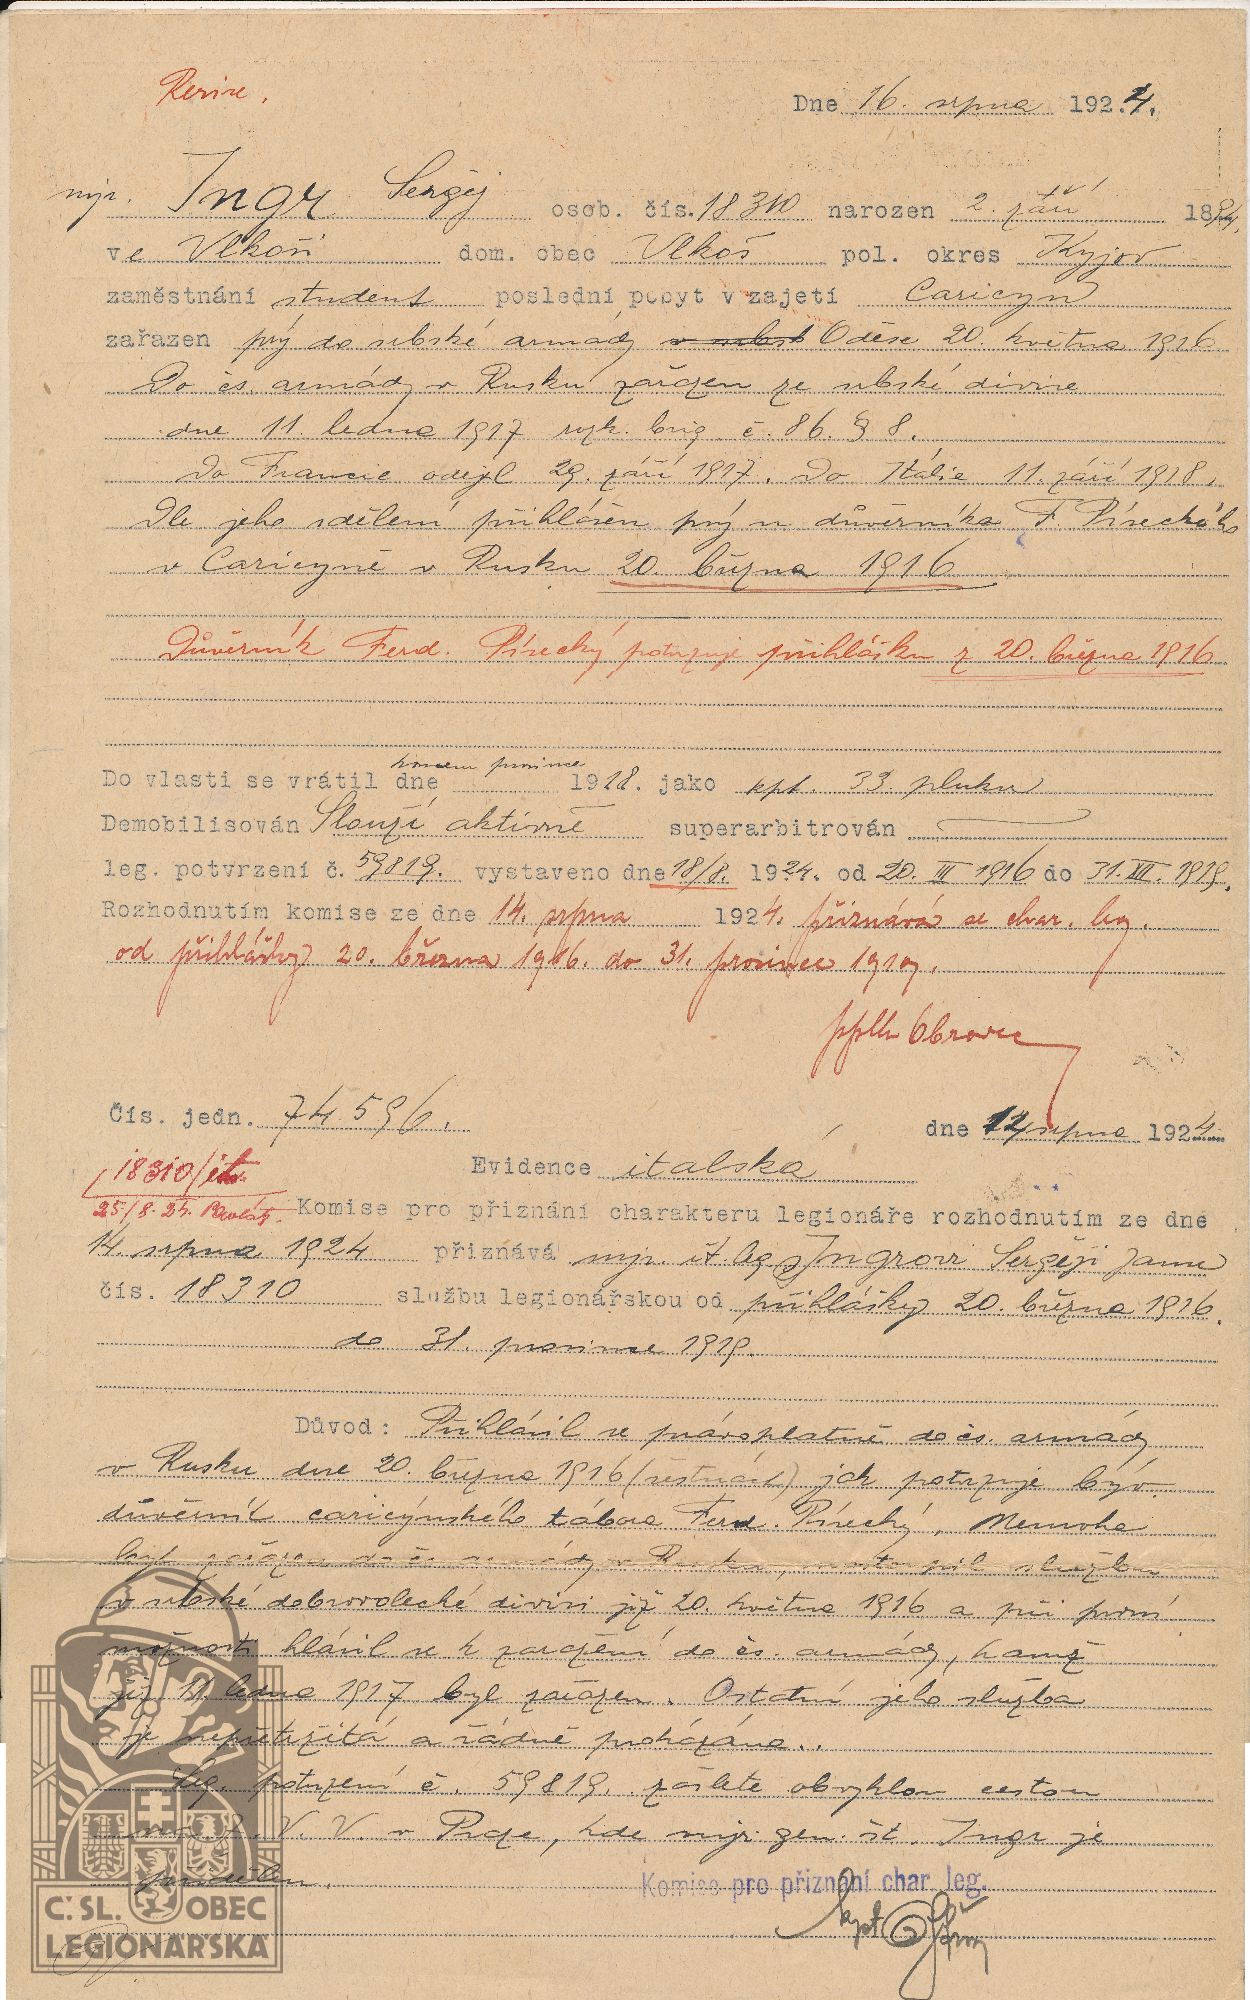 Revise.
Dne 16. srpna 1924.
mjr. Ingr Sergěj osob. čís. 18310 narozen 2. září 1894.
ve Vlkoši dom. obec Vlkoš pol. okres Kyjov
zaměstnání student poslední pobyt v zajetí Caricyn
zařazen prý do srbské armády v srbsk Oděse 20. května 1916
Do čs. armády v Rusku zařazen ze srbské divise
dne 11. ledna 1917 rozk. brig. č. 86. § 8.
Do Francie odejel 29. září 1917. Do Itálie 11. září 1918.
Dle jeho sdělení přihlášen prý u důvěrníka F. Píseckého
v Caricyně v Rusku 20. března 1916
Důvěrník Ferd. Písecký potvrzuje přihlášku z 20. března 1916
koncem prosince
Do vlasti se vrátil dne 1918. jako kpt. 33. pluku
Demobilisován Slouží aktivně superarbitrován
leg. potvrzení č. 59819. vystaveno dne 18/8. 1924. od 20. III 1916 do 31. XII. 1919.
Rozhodnutím komise ze dne 14. srpna 1924. přiznává se char. leg.
od přihlášky 20. března 1916. do 31. prosince 1919.
Čís. jedn. 74596. dne 14 srpna 1924
18310/it
Evidence italská
25/8. 24.
Komise pro přiznání charakteru legionáře rozhodnutím ze dne
14. srpna 1924 přiznává mjr. it. leg. Ingrovi Sergěji Janu
čís. 18310 službu legionářskou od přihlášky 20. března 1916.
do 31. prosince 1919.
Důvod: Přihlásil se právoplatně do čs. armády
v Rusku dne 20. března 1916 (šestnáct) jak potvrzuje býv.
důvěrník caricynského tábora Ferd. Písecký. Nemoha
býti zařazen do čs. armády v Rusku, nastoupil službu
v srbské dobrovolecké divisi již 20. května 1916 a při první
možnosti hlásil se k zařazení do čs. armády, kamž
již 11. ledna 1917 byl zařazen. Ostatní jeho služba
je nepřetržitá a řádně prokázána.
Leg. potvrzení č. 59819. zašlete obvyklou cestou
V. V. v Praze, kde mjr. gen. št. Ingr je
přidělen.
Komise pro přiznání char. leg.
kpt
Č. SL. OBEC
LEGIONÁŘSKÁ